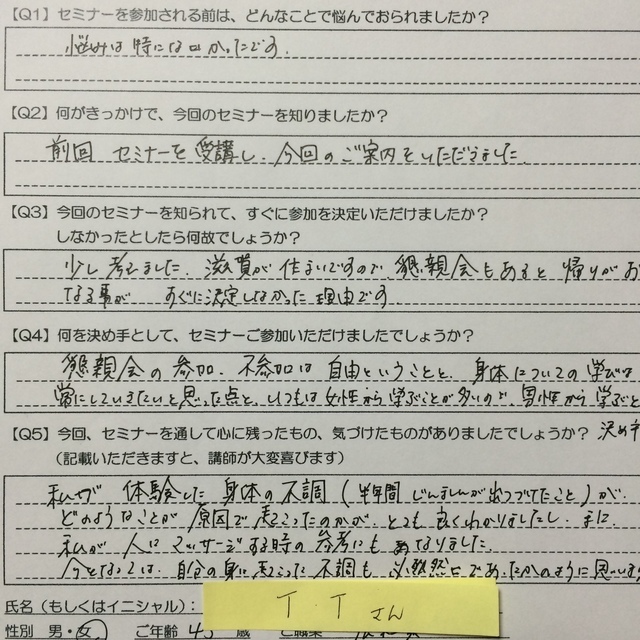 【Q1】セミナーを参加される前は、どんなことで悩んでおられましたか？
悩みは特にはなかったです。
【Q2】何がきっかけで、今回のセミナーを知りましたか？
前回 セミナーを受講し、今回のご案内をいただきました。
【Q3】今回のセミナーを知られて、すぐに参加を決定いただけましたか？
しなかったとしたら何故でしょうか？
少し考えました。滋賀が住まいですので、懇親会もあると帰りがお
なる事が すぐに決定しなかった理由です
【Q4】何を決め手として、セミナーご参加いただけましたでしょうか？
懇親会の参加、不参加は自由ということと、身体についての学びは
常にしていきたいと思った点と、いつもは女性から学ぶことが多いので、男性から学ぶと
【Q5】今回、セミナーを通して心に残ったもの、気づけたものがありましたでしょうか？ 決め手
（記載いただきますと、講師が大変喜びます）
私が 体験した身体の不調（半年間じんましんが出つづけてたこと）が、
どのようなことが原因で起こったのかが、とても良くわかりましたし、また、
私が人にマッサージする時の参考にもなりました。
今となっては、自分の身に起こった不調も必然であったかのように思いま
氏名（もしくはイニシャル）： T・Tさん
性別 男・女 ご年齢 歳